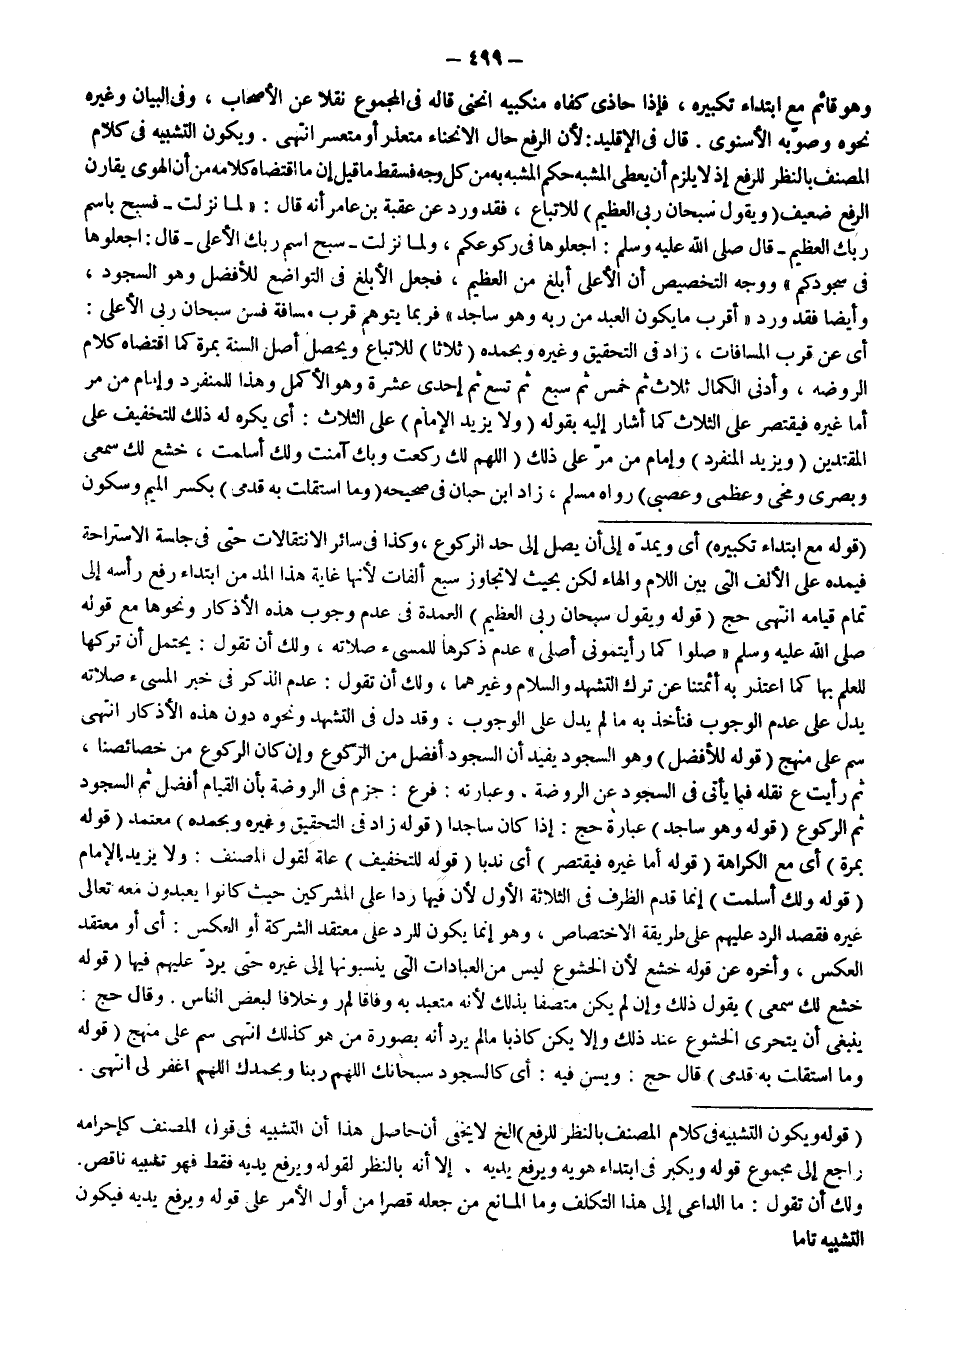 – ٤٩٩ –
وهو قائم مع ابتداء تكبيره ، فإذا حاذى كفاه منكبيه انحنى قاله فى المجموع نقلا عن الأصحاب ، وفى البيان وغيره
نحوه وصوّبه الأسنوى . قال فى الإقليد: لأن الرفع حال الانحناء متعذر أو متعسر انتهى . ويكون التشبيه فى كلام
المصنف بالنظر للرفع إذ لا يلزم أن يعطى المشبه حكم المشبه به من كل وجه فسقط ما قيل إن ما اقتضاه كلامه من أن الهوى يقارن
الرفع ضعيف ( ويقول سبحان ربى العظيم ) للاتباع ، فقد ورد عن عقبة بن عامر أنه قال : « لما نزلت – فسبح باسم
ربك العظيم – قال صلى الله عليه وسلم : اجعلوها فى ركوعكم ، ولما نزلت – سبح اسم ربك الأعلى – قال : اجعلوها
فى سجودكم » ووجه التخصيص أن الأعلى أبلغ من العظيم ، فجعل الأبلغ فى التواضع للأفضل وهو السجود ،
وأيضا فقد ورد « أقرب ما يكون العبد من ربه وهو ساجد » فربما يتوهم قرب مسافة فسن سبحان ربى الأعلى :
أى عن قرب المسافات ، زاد فى التحقيق وغيره وبحمده ( ثلاثا ) للاتباع ويحصل أصل السنة بمرة كما اقتضاه كلام
الروضه ، وأدنى الكمال ثلاث ثم خمس ثم سبع ثم تسع ثم إحدى عشرة وهو الأكمل وهذا للمنفرد وإمام من مر
أما غيره فيقتصر على الثلاث كما أشار إليه بقوله ( ولا يزيد الإمام ) على الثلاث : أى يكره له ذلك للتخفيف على
المقتدين ( ويزيد المنفرد ) وإمام من مرّ على ذلك ( اللهم لك ركعت وبك آمنت ولك أسلمت ، خشع لك سمعى
وبصرى ومخى وعظمى وعصبى ) رواه مسلم ، زاد ابن حبان فى صحيحه ( وما استقلت به قدمى ) بكسر الميم وسكون
( قوله مع ابتداء تكبيره ) أى ويمدّه إلى أن يصل إلى حد الركوع ، وكذا فى سائر الانتقالات حتى فى جلسة الاستراحة
فيمده على الألف التى بين اللام والهاء لكن بحيث لا تجاوز سبع ألفات لأنها غاية هذا المد من ابتداء رفع رأسه إلى
تمام قيامه انتهى حج ( قوله ويقول سبحان ربى العظيم ) العمدة فى عدم وجوب هذه الأذكار ونحوها مع قوله
صلى الله عليه وسلم « صلوا كما رأيتمونى أصلى » عدم ذكرها للمسىء صلاته ، ولك أن تقول : يحتمل أن تركها
للعلم بها كما اعتذر به أئمتنا عن ترك التشهد والسلام وغيرهما ، ولك أن تقول : عدم الذكر فى خبر المسىء صلاته
يدل على عدم الوجوب فنأخذ به ما لم يدل على الوجوب ، وقد دل فى التشهد ونحوه دون هذه الأذكار انتهى
سم على منهج ( قوله للأفضل ) وهو السجود يفيد أن السجود أفضل من الركوع وإن كان الركوع من خصائصنا ،
ثم رأيت ع نقله فيما يأتى فى السجود عن الروضة . وعبارته : فرع : جزم فى الروضة بأن القيام أفضل ثم السجود
ثم الركوع ( قوله وهو ساجد ) عبارة حج : إذا كان ساجدا ( قوله زاد فى التحقيق وغيره وبحمده ) معتمد ( قوله
بمرة ) أى مع الكراهة ( قوله أما غيره فيقتصر ) أى ندبا ( قوله للتخفيف ) علة لقول المصنف : ولا يزيد الإمام
( قوله ولك أسلمت ) إنما قدم الظرف فى الثلاثة الأول لأن فيها ردا على المشركين حيث كانوا يعبدون معه تعالى
غيره فقصد الرد عليهم على طريقة الاختصاص ، وهو إنما يكون للرد على معتقد الشركة أو العكس : أى أو معتقد
العكس ، وأخره عن قوله خشع لأن الخشوع ليس من العبادات التى ينسبونها إلى غيره حتى يردّ عليهم فيها ( قوله
خشع لك سمعى ) يقول ذلك وإن لم يكن متصفا بذلك لأنه متعبد به وفاقا لمر وخلافا لبعض الناس . وقال حج :
ينبغى أن يتحرى الخشوع عند ذلك وإلا يكن كاذبا مالم يرد أنه بصورة من هو كذلك انتهى سم على منهج ( قوله
وما استقلت به قدمى ) قال حج : ويسن فيه : أى كالسجود سبحانك اللهم ربنا وبحمدك اللهم اغفر لى انتهى .
( قوله ويكون التشبيه فى كلام المصنف بالنظر للرفع ) الخ لا يخفى أن حاصل هذا أن التشبيه فى قول المصنف كإحرامه
راجع إلى مجموع قوله ويكبر فى ابتداء هويه ويرفع يديه . إلا أنه بالنظر لقوله ويرفع يديه فقط فهو تشبيه ناقص.
ولك أن تقول : ما الداعى إلى هذا التكلف وما المانع من جعله قصرا من أول الأمر على قوله ويرفع يديه فيكون
التشبيه تاما